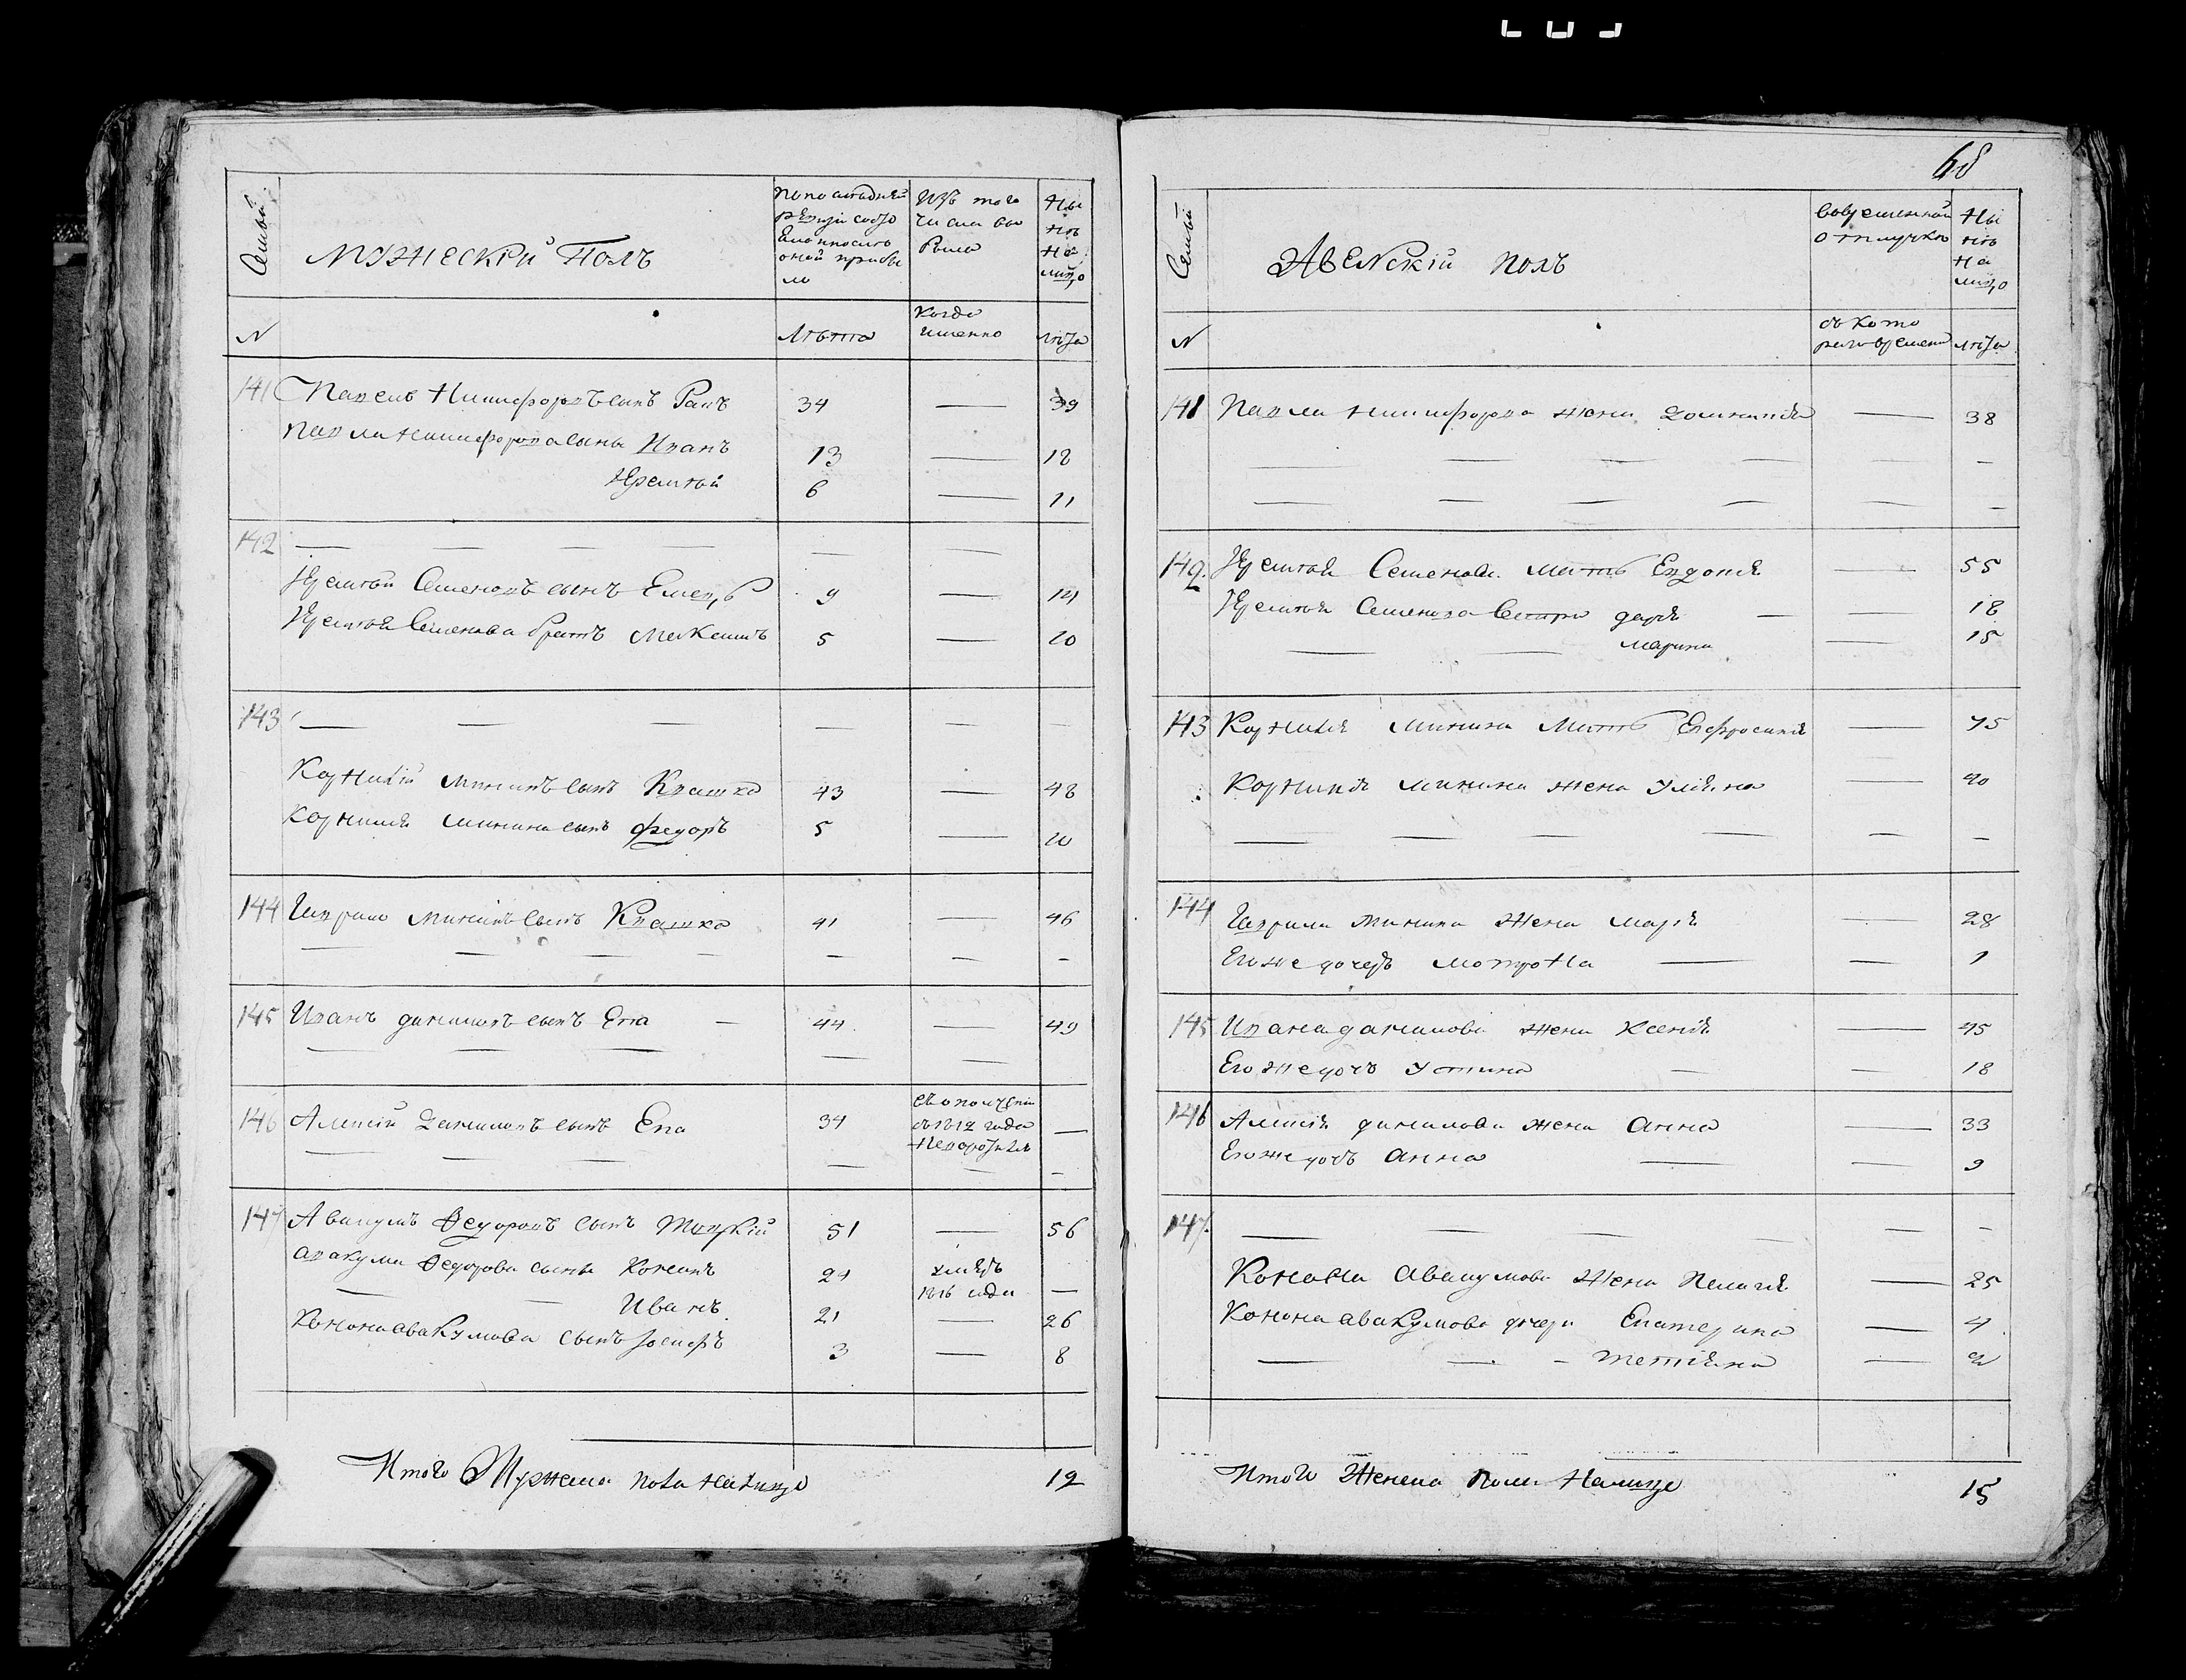 Семьи
МУЖЕСКІЙ ПОЛЪ
По последней
ревизіи состо
яло и после
оной прибы
ло
Изъ того
числа вы
было
Ны
нѣ
на
лицо
N
Лѣта
Когда
именно
Лѣта
141 Павелъ Никифоровъ сынъ 34 — 39
Павла Никифорова сыны Иванъ 13 — 18
Еремѣй 6 — 11
142 — — — — — —
Еремѣй Семеновъ сынъ 9 — 14
Еремѣя Семенова братъ Максимъ 5 — 10
143 — — — — — —
Корнилій Мининъ сынъ Квашка 43 — 48
Корнилія Минина сынъ Федоръ 5 — 10
144 Гаврило Мининъ сынъ Квашка 41 — 46
— — — — — — —
145 Иванъ Даниловъ сынъ — 44 — 49
— — — — —
146 Алексій Даниловъ сынъ 34
въ 1812 года —
— — — — — —
147 Авакумъ Федоровъ сынъ 51 — 56
Авакума Федорова сыны Кононъ 24 умеръ
1816 года —
— — Иванъ 21 — 26
Конона Авакумова сынъ Іосифъ 3 — 8
Итого Мужеска пола налицо 12
68
Семьи
ЖЕНСКІЙ ПОЛЪ
во временной
отлучке
Ны
нѣ
на
лицо
N
съ кото
раго времени
Лѣта
141 Павла Никифорова жена Домникія — 38
— — — — — —
— — — — — —
142 Еремѣя Семенова мать Евдокія — 55
Еремѣя Семенова сестры Дарія — 18
— — Марина — 15
143 Корнилія Минина мать Евфросинія — 75
Корнилія Минина жена Уліяна — 40
— — — — — —
144 Гаврила Минина жена Марія — 28
Его же дочерь Мотрона — — 1
145 Ивана Данилова жена Ксенія — 45
Его же дочь Устина — — 18
146 Алексія Данилова жена Анна — 33
Его же дочь Анна — — 9
147. — — — — — —
Конона Авакумова жена Пелагія — 25
Конона Авакумова дочери Екатерина — 4
— — — Тетіяна — 2
Итого Женска пола налицо 15